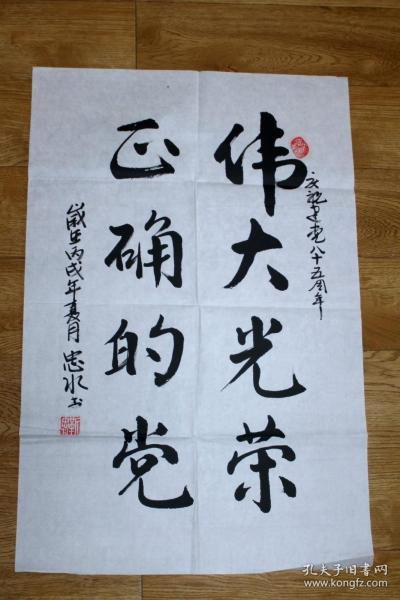 庆祝建党八十五周年
伟大光荣
正确的党
岁在丙戌年夏月 忠水书
孔夫子旧书网
www.kongfz.com